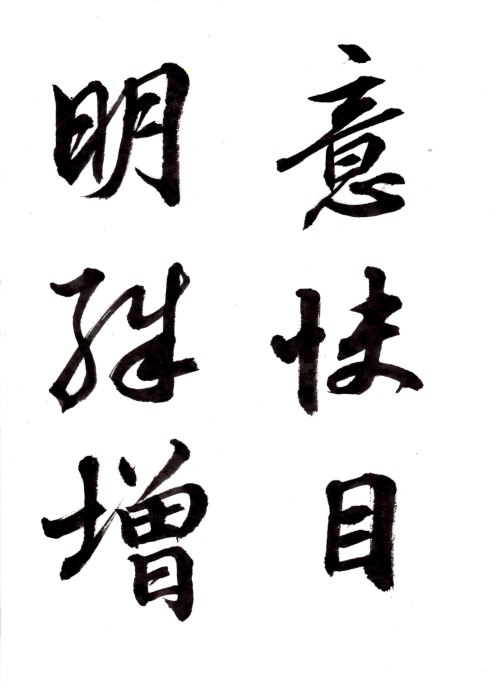 意快目
明殊増